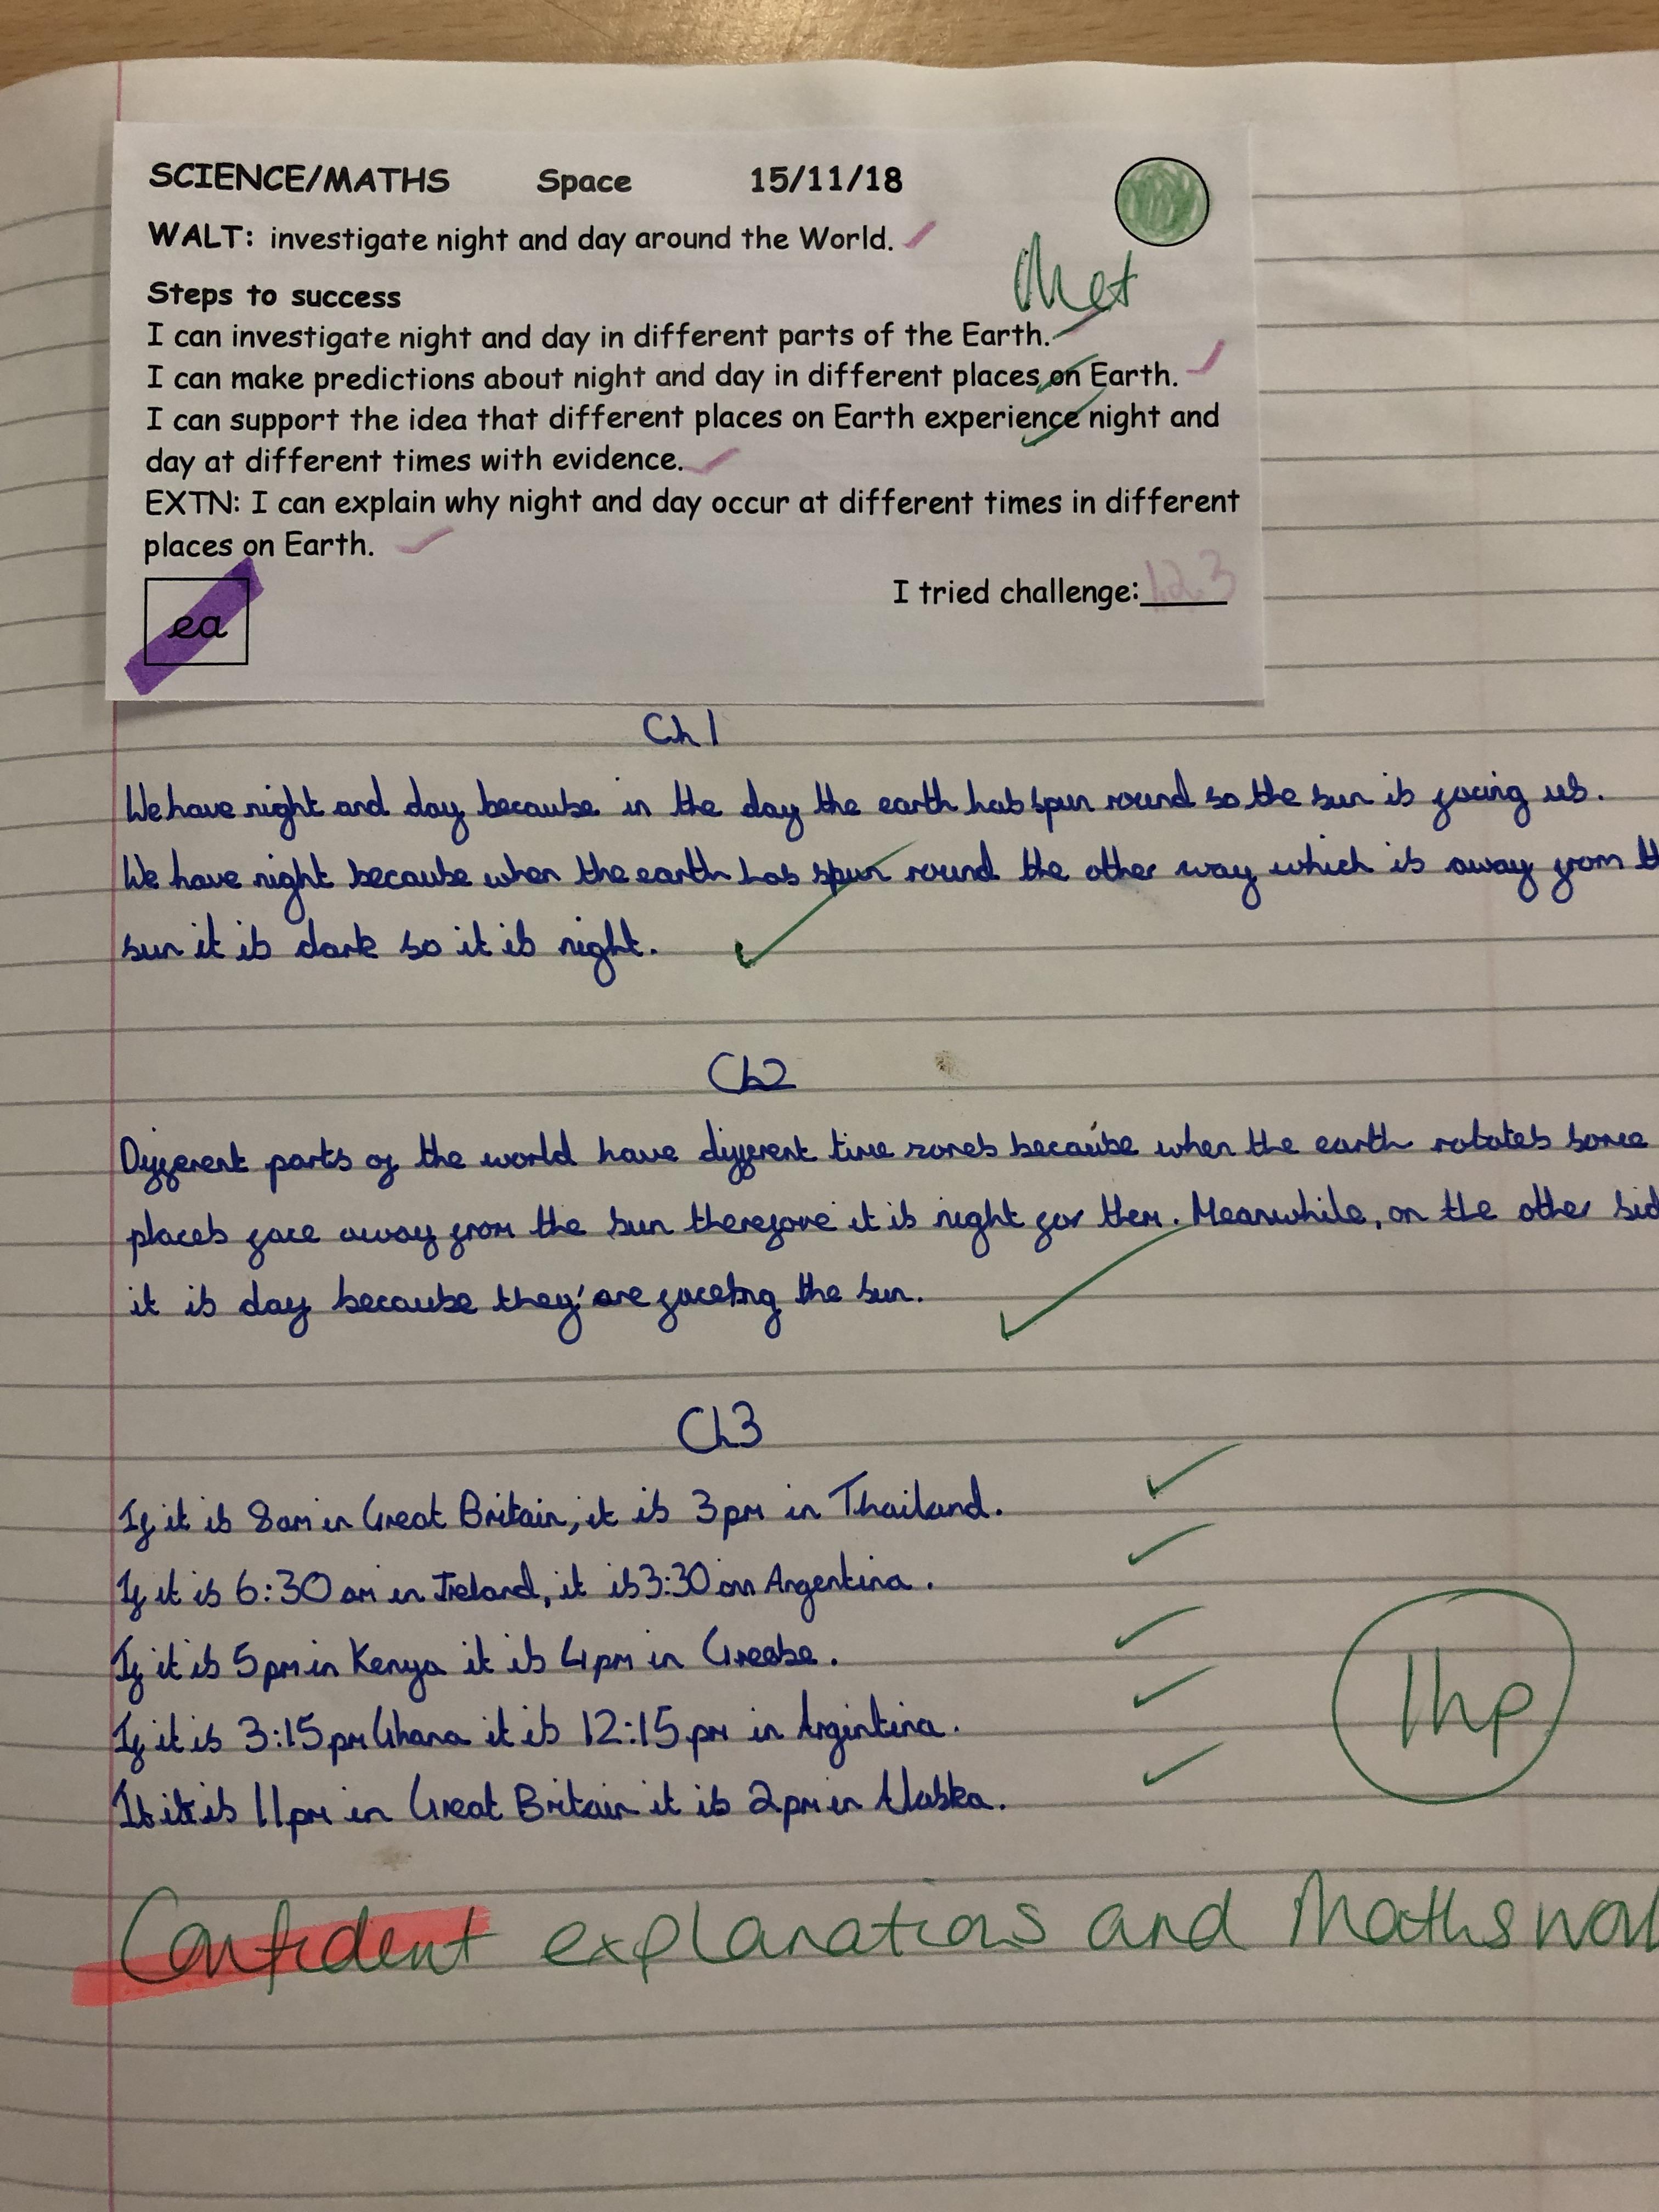 SCIENCE/MATHS Space 15/11/18
WALT: investigate night and day around the World.
Met
Steps to success
I can investigate night and day in different parts of the Earth.
I can make predictions about night and day in different places on Earth.
I can support the idea that different places on Earth experience night and
day at different times with evidence.
EXTN: I can explain why night and day occur at different times in different
places on Earth.
I tried challenge: 1,2,3
ea
Ch1
We have night and day because in the day the earth has spun round so the sun is facing us.
We have night because when the earth has spun round the other way which is away from
sun it is dark so it is night.
Ch2
Different parts of the world have different time zones because when the earth rotates some
places face away from the sun therefore it is night for them. Meanwhile, on the other
it is day because they are facing the sun.
Ch3
If it is 8am in Great Britain, it is 3pm in Thailand.
If it is 6:30 am in Ireland, it is 3:30 am Argentina.
If it is 5pm in Kenya it is 4pm in Greese.
If it is 3:15pm Ghana it is 12:15pm in Argintina.
If it is 11pm in Great Britain it is 2pm in Alaska.
1hp
Confident explanations and Maths